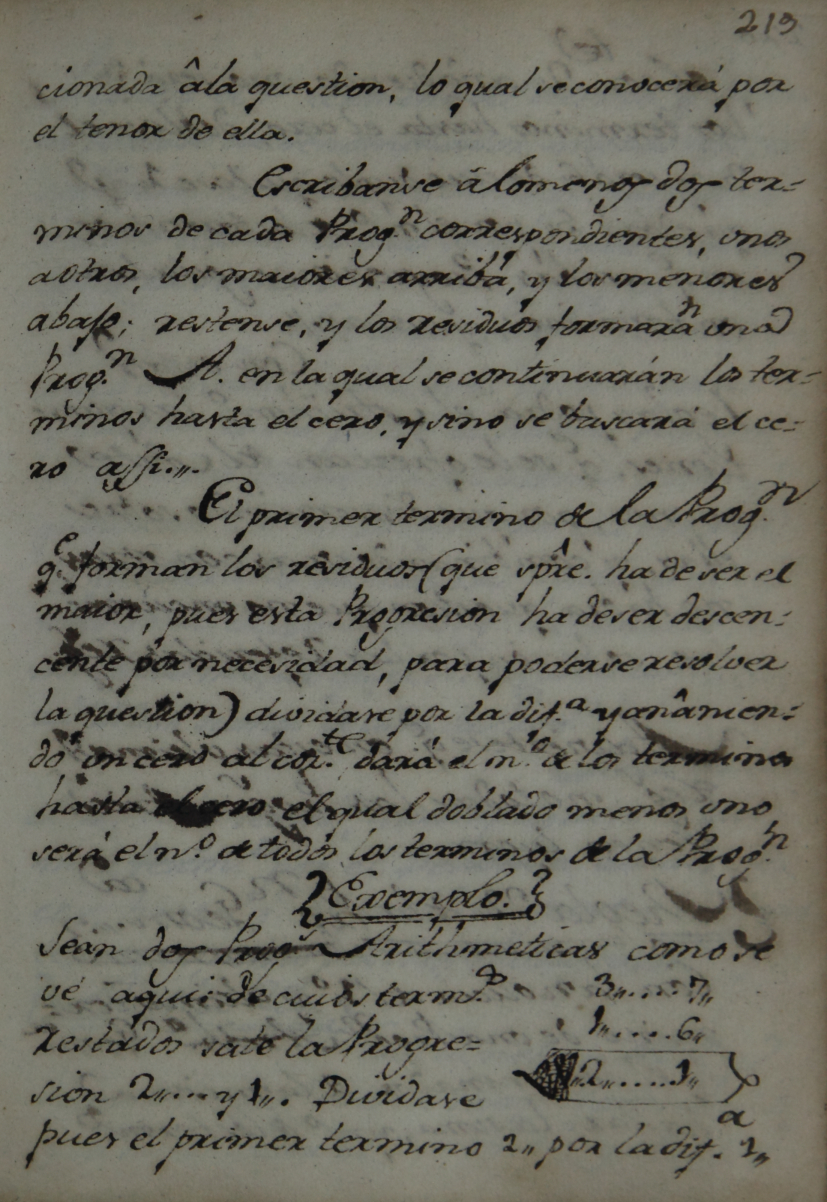 213
cionada âla question, lo qual seconocerá por
el tenor de ella.
Escribanse â lomenos dos ter=
minos de cada Prog.n correspondientes, unos
aotros, los maiores arriba, y los menores
abajo; restense, y los residuos formarán una
Prog.n A. en la qual se continuarán los ter=
minos hasta el cero, y sino se buscará el ce=
ro assi.,,.
El primer termino de la Prog.n
q.e forman los residuos (que spre. ha deser el
maior, pues esta Progresion ha deser descen=
cente por necesidad, para poderse resolver
la question) dividase por la dif.a y añanien=
do un cero al cor.te dará el n.o de los terminos
hasta el cero el qual doblado menos uno
será el n.o de todos los terminos de la Prog.n
Exemplo.
Sean dos Prog.s Arithmeticas como se
vé aqui; de cuios term.os 3,,....7,,
1,,....6,,
restados sale la Progre=
2,,....1,,
sion 2,,....y 1,,. Dividase
pues el primer termino 2,, por la dif.a 1,,